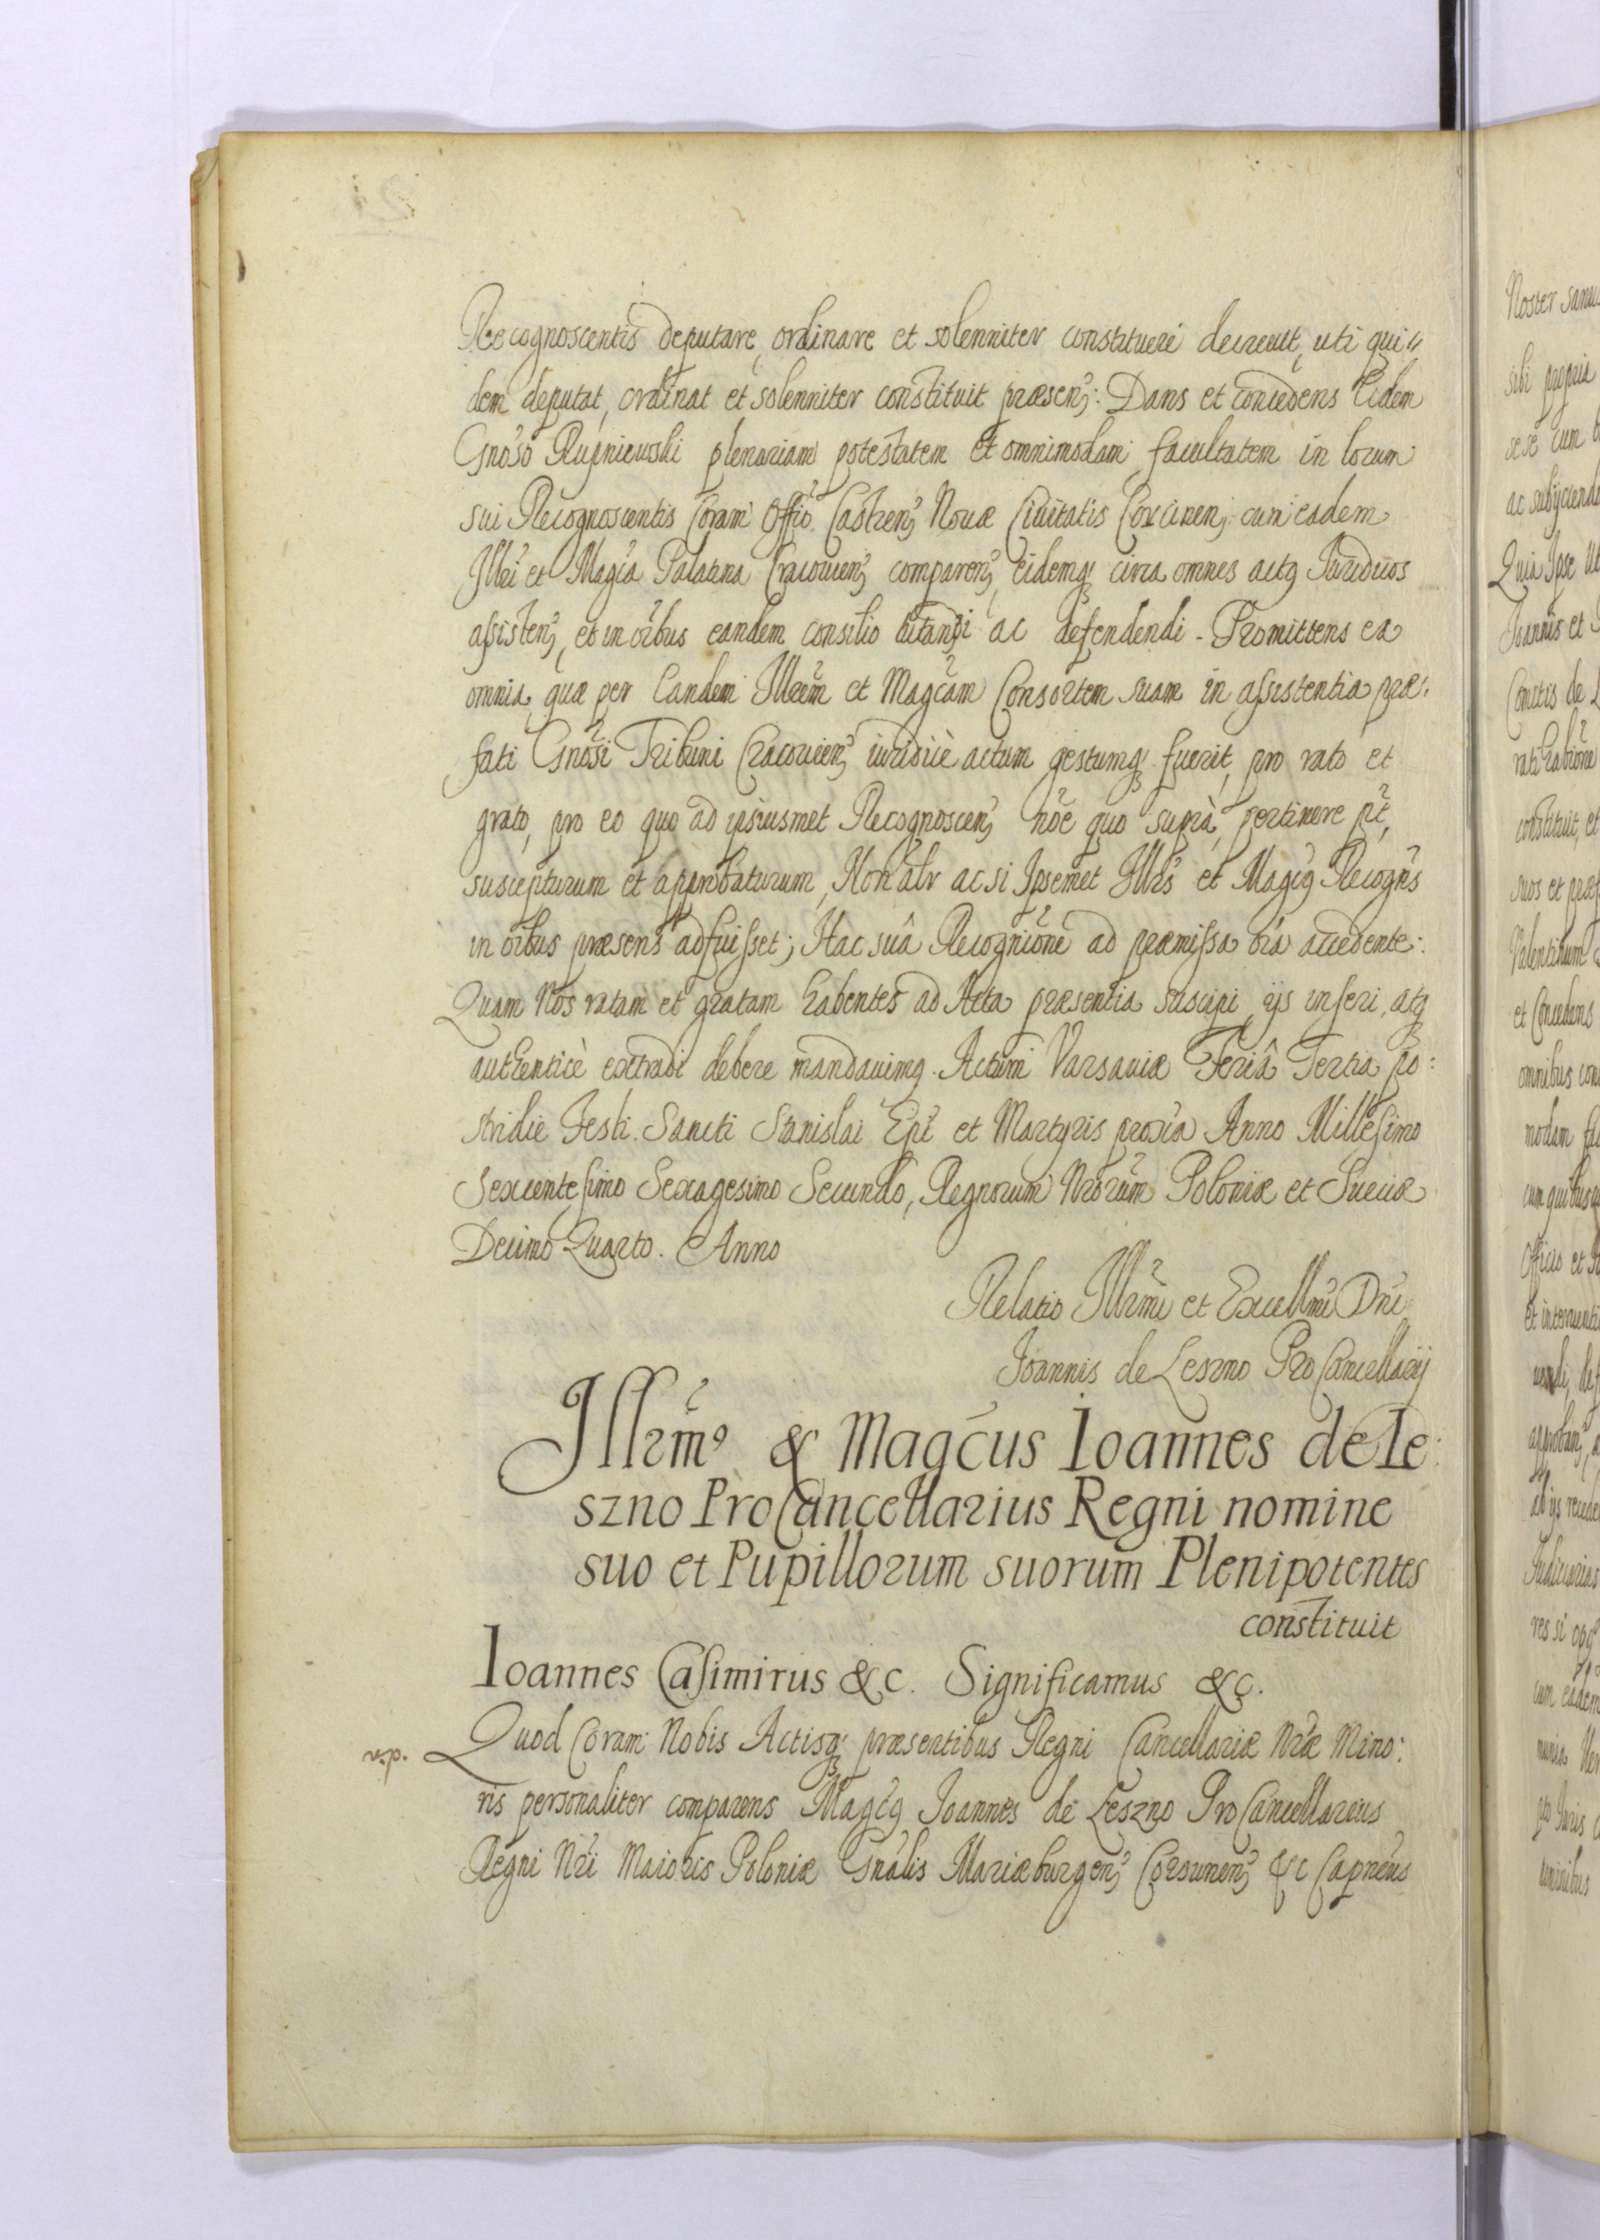 Recognoscentis deputare, ordinare et solenniter constituere decrevit, uti qui=
dem deputat, ordinat et solenniter constituit præsen: Dans et concedens Eidem
Gnoso Rupniewski plenariam potestatem et omnimodam facultatem in locum
sui Recognoscentis Coram Offio Castren Novæ Civitatis Corcinen: cum eadem
Illri et Magca Palatina Cracovien comparen, eidemq circa omnes actq Juridicos
assisten, et in oibus eandem consilio iutandi ac defendendi. Promittens ea
omnia quæ per Eandem Illrem et Magcam Consortem suam in assistentia præ:
fati Gnosi Tribuni Cracovien iuridicè actum gestumq fuerit, pro rato et
grato, pro eo quo ad ipsiusmet Recognoscen noe quo suprà, pertinere pt,
suscepturum et approbaturum, Non alr ac si Ipsemet Illris et Magcq Recogns
in oibus præsens adfuisset; Hac suâ Recognitione ad præmissa oia accedente:
Quam Nos ratam et gratam habentes ad Acta præsentia suscipi, ijs inseri, atq
authenticè extradi debere mandavimq. Actum Varsaviæ Feriâ Tertia po:
stridie Festi Sancti Stanislai Epi et Martyris proxia Anno Millesimo
Sexcentesimo Sexagesimo Secundo, Regnorum Nrorum Poloniæ et Sueciæ
Decimo Quarto. Anno
Relatio Illrmi et Excellmi Dni
Joannis de Leszno ProCancellarij
Illrmo & Magcus Ioannes de Le:
szno ProCancellarius Regni nomine
suo et Pupillorum suorum Plenipotentes
constituit
Ioannes Casimirus &c. Significamus &c.
Quod Coram Nobis Actisq præsentibus Regni Cancellariæ Nræ Mino:
ris personaliter comparens Magcq Joannes de Leszno ProCancellarius
Regni Nri Maioris Poloniæ Gnalis Mariæburgen Corsunen &c Capneus